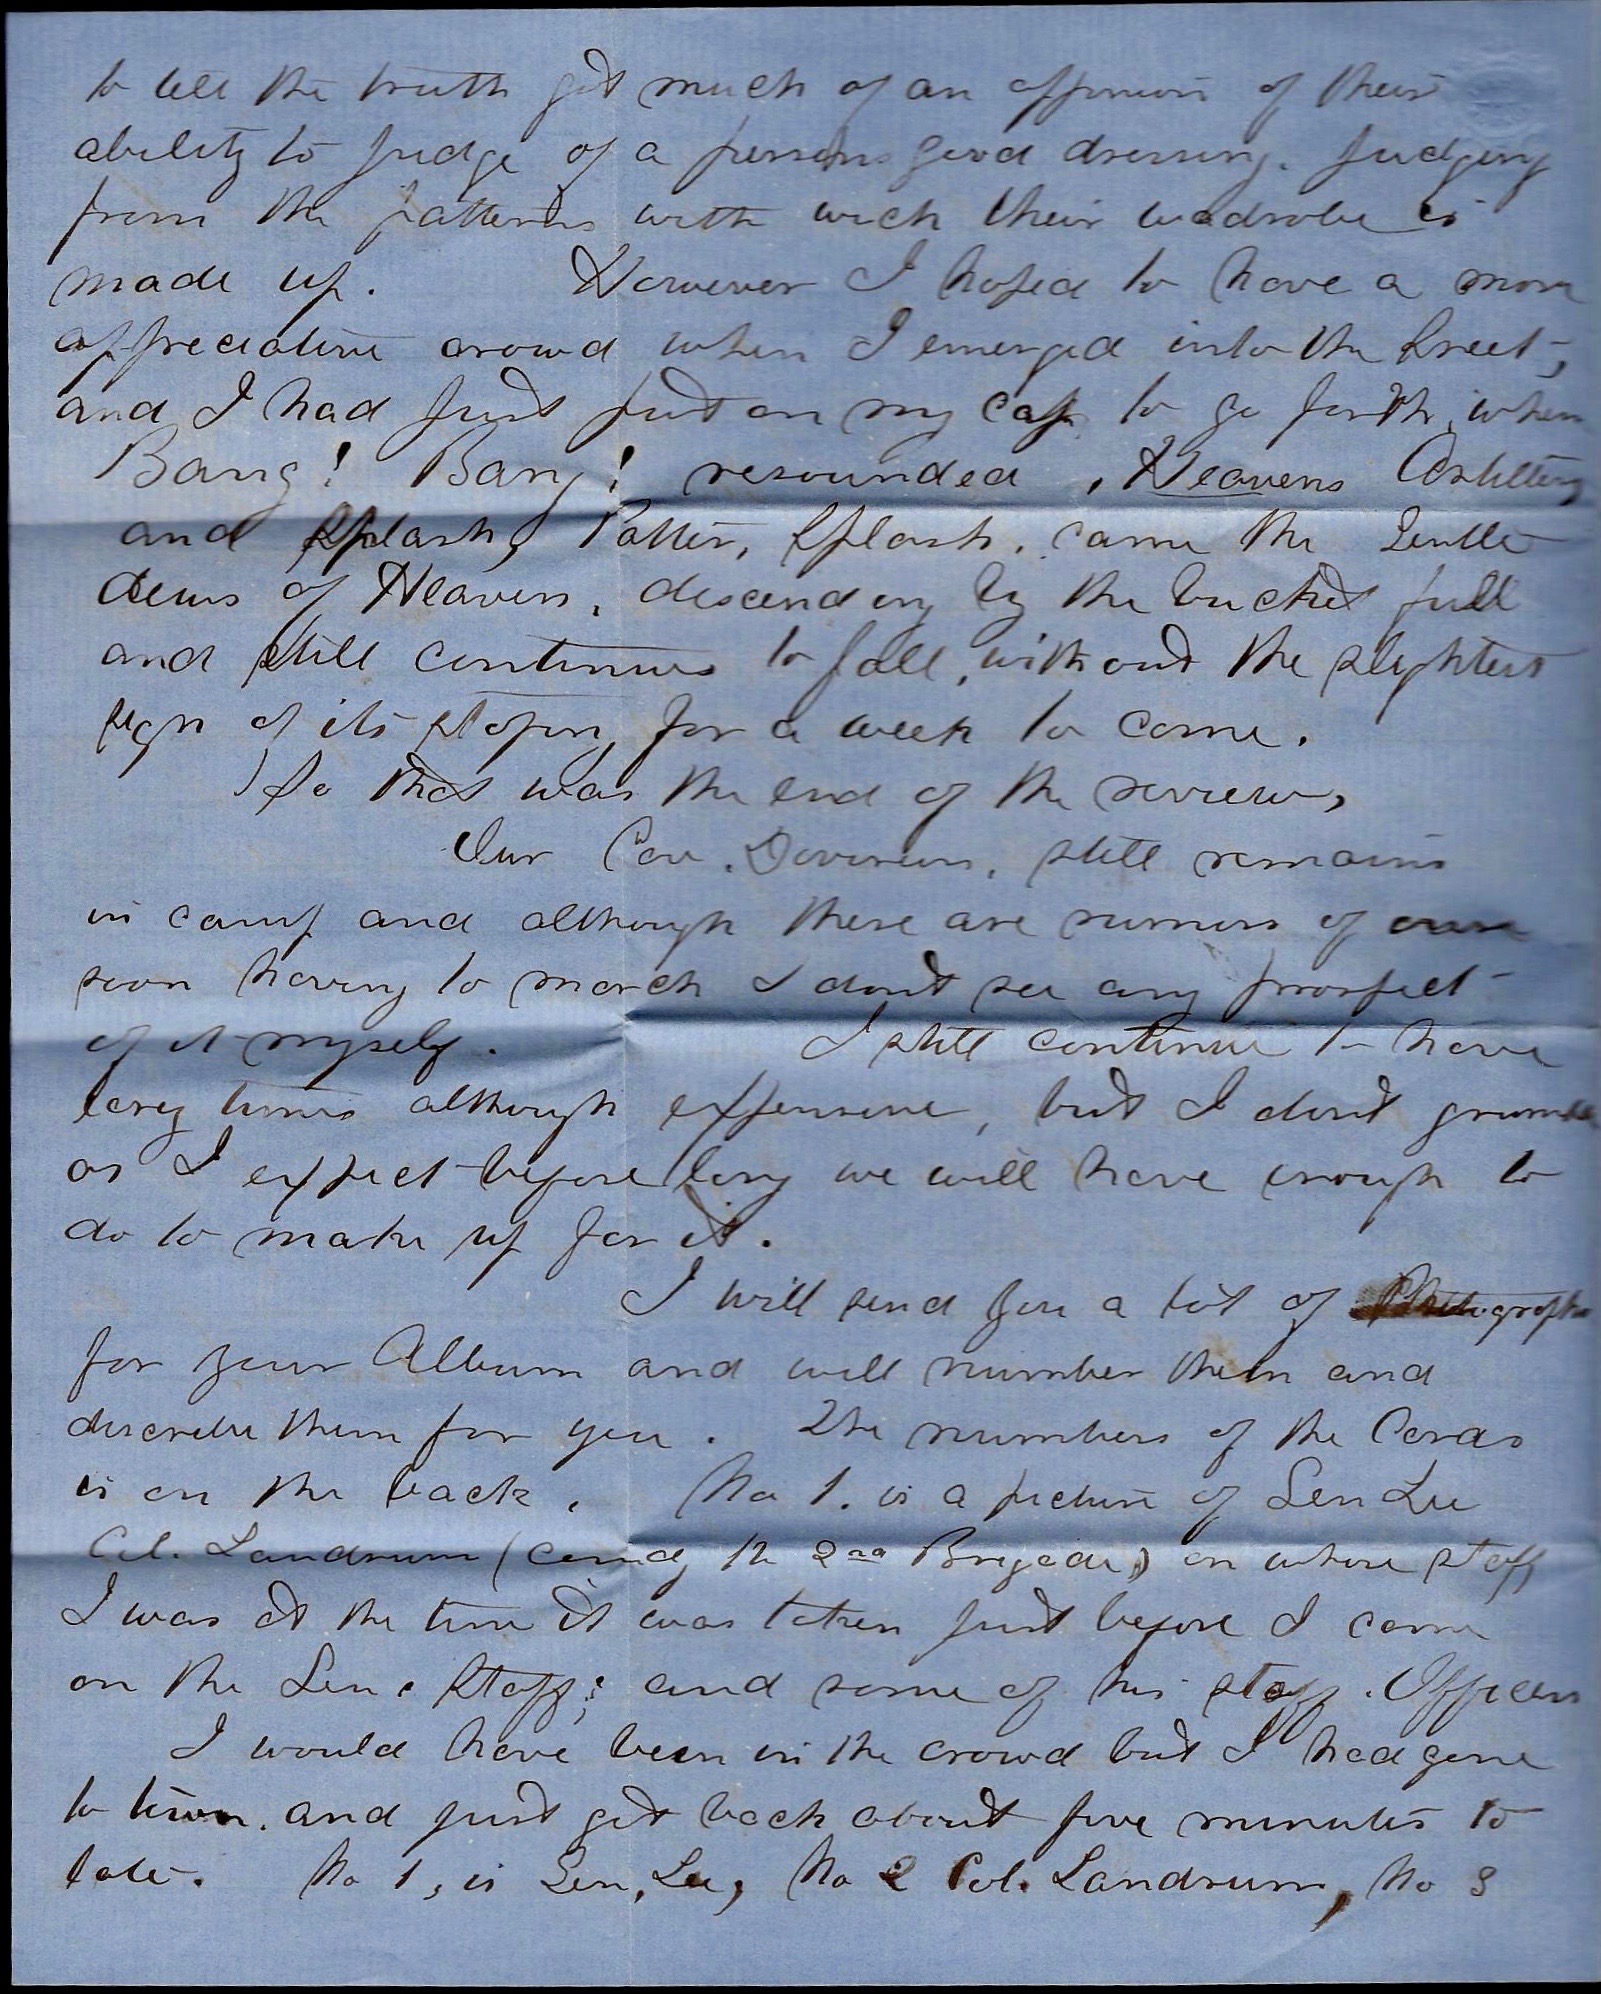 to tell the truth got much of an oppinion of their
ability to judge of a persons good dressing. Judging
from the patterns with wich their wadrobe is
made up. However I hoped to have a more
appreciative crowd when I emerged into the Street,
and I had just put on my cap to go forth, when
Bang! Bang! resounded, Heavens Artillery
and Splash, Patter, Splash, came the Gentle
dews of Heaven, descending by the bucket full
and still continues to fall, without the slightest
sign of its stoping for a week to come.
So that was the end of the review,
Our Cav. Division, still remains
in camp and although there are rumors of our
soon having to march I dont see any prospect
of it myself. I still continue to have
lazy times although expensive, but I dont grumble
as I expect before long we will have enough to
do to make up for it.
I will send you a lot of Photographs
for your Album and will number them and
discribe them for you. The numbers of the Cards
is on the back. No 1. is a picture of Gen Lee
Col. Landrum (comdg the 2nd Brigade) on whose staff
I was at the time it was taken just before I came
on the Gen. Staff; and some of his staff. Officers
I would have been in the crowd but I had gone
to town. and just got back about five minutes to
late. No 1, is Gen. Lee, No 2 Col. Landrum, No 3